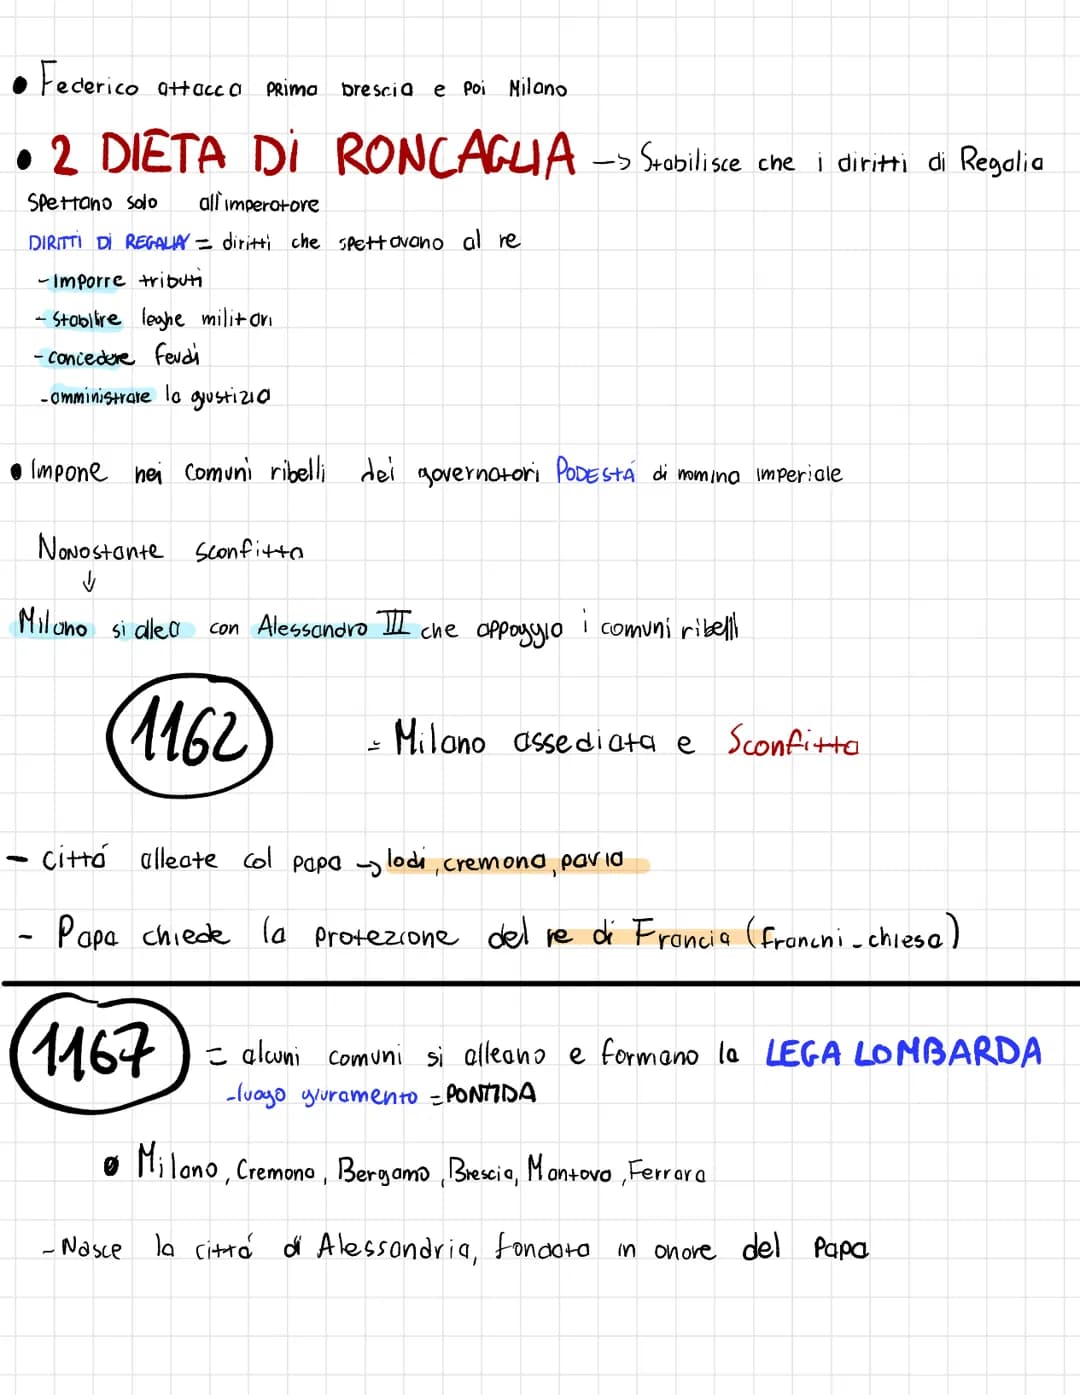 • Federico attacca prima brescia e poi Milano
• 2 DIETA DI RONCAGLIA -> Stabilisce che i diritti di Regalia
Spettano solo all'imperatore
DIRITTI DI REGALIA = diritti che spettavano al re
- Imporre tributi
- Stabilire leghe militari
- concedere feudi
- amministrare la giustizia
• Impone nei comuni ribelli dei governatori PODESTÁ di nomina imperiale
Nonostante sconfitta
↓
Milano si allea con Alessandro III che appoggia i comuni ribelli
1162 = Milano assediata e Sconfitta
- cittá alleate col papa -> lodi, cremona, pavia
- Papa chiede la protezione del re di Francia (franchi - chiesa)
1167 = alcuni comuni si alleano e formano la LEGA LOMBARDA
- luogo giuramento = PONTIDA
• Milano, Cremona, Bergamo, Brescia, Mantova, Ferrara
- Nasce la cittá di Alessandria, fondata in onore del Papa